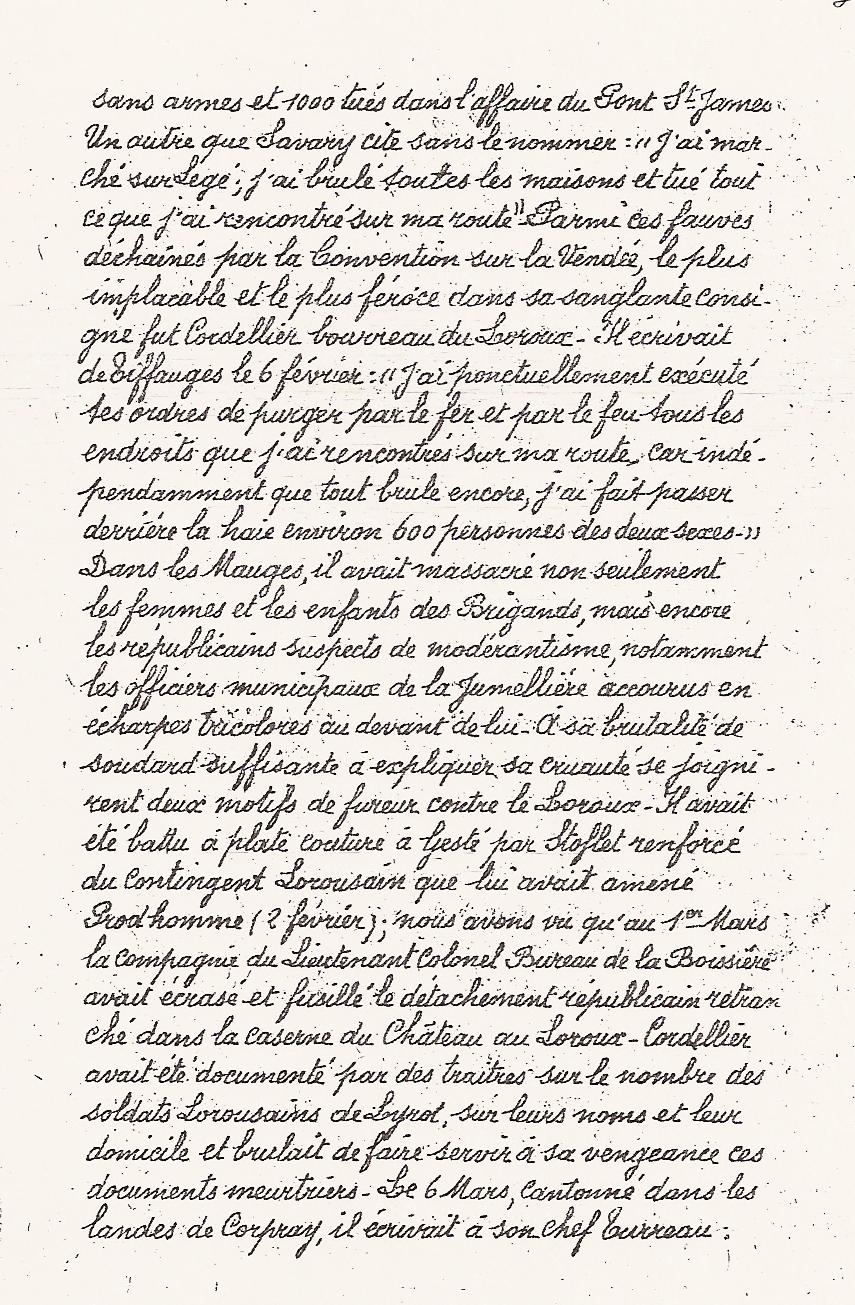 sans armes et 1000 tués dans l'affaire du Pont St James.
Un autre que Savary cite sans le nommer : " J'ai mar-
ché sur Legé ; j'ai brulé toutes les maisons et tué tout
ce que j'ai rencontré sur ma route" - Parmi ces fauves
déchainés par la Convention sur la Vendée, le plus
implacable et le plus féroce dans sa sanglante consi-
gne fut Cordellier bourreau du Loroux - Il écrivait
de Tiffauges le 6 février : " J'ai ponctuellement exécuté
tes ordres de purger par le fer et par le feu tous les
endroits que j'ai rencontrés sur ma route, car indé-
pendamment que tout brule encore, j'ai fait passer
derrière la haie environ 600 personnes des deux sexes - "
Dans les Mauges, il avait massacré non seulement
les femmes et les enfants des Brigands, mais encore
les républicains suspects de modérantisme, notamment
les officiers municipaux de la Jumellière accourus en
écharpes tricolores au devant de lui - A sa brutalité de
soudard suffisante à expliquer sa cruauté se joigni-
rent deux motifs de fureur contre le Loroux - Il avait
été battu à plate couture à Gesté par Stoflet renforcé
du contingent Lorousain que lui avait amené
Prodhomme ( 2 février ) ; nous avons vu qu'au 1er Mars
la compagnie du Lieutenant Colonel Bureau de la Boissière
avait écrasé et fusillé le détachement républicain retran
ché dans la caserne du Château au Loroux - Cordellier
avait été documenté par des traitres sur le nombre des
soldats Lorousains de Lyrot, sur leurs noms et leur
domicile et brulait de faire servir à sa vengeance ces
documents meurtriers - Le 6 Mars, cantonné dans les
landes de Corpray, il écrivait à son chef Turreau :